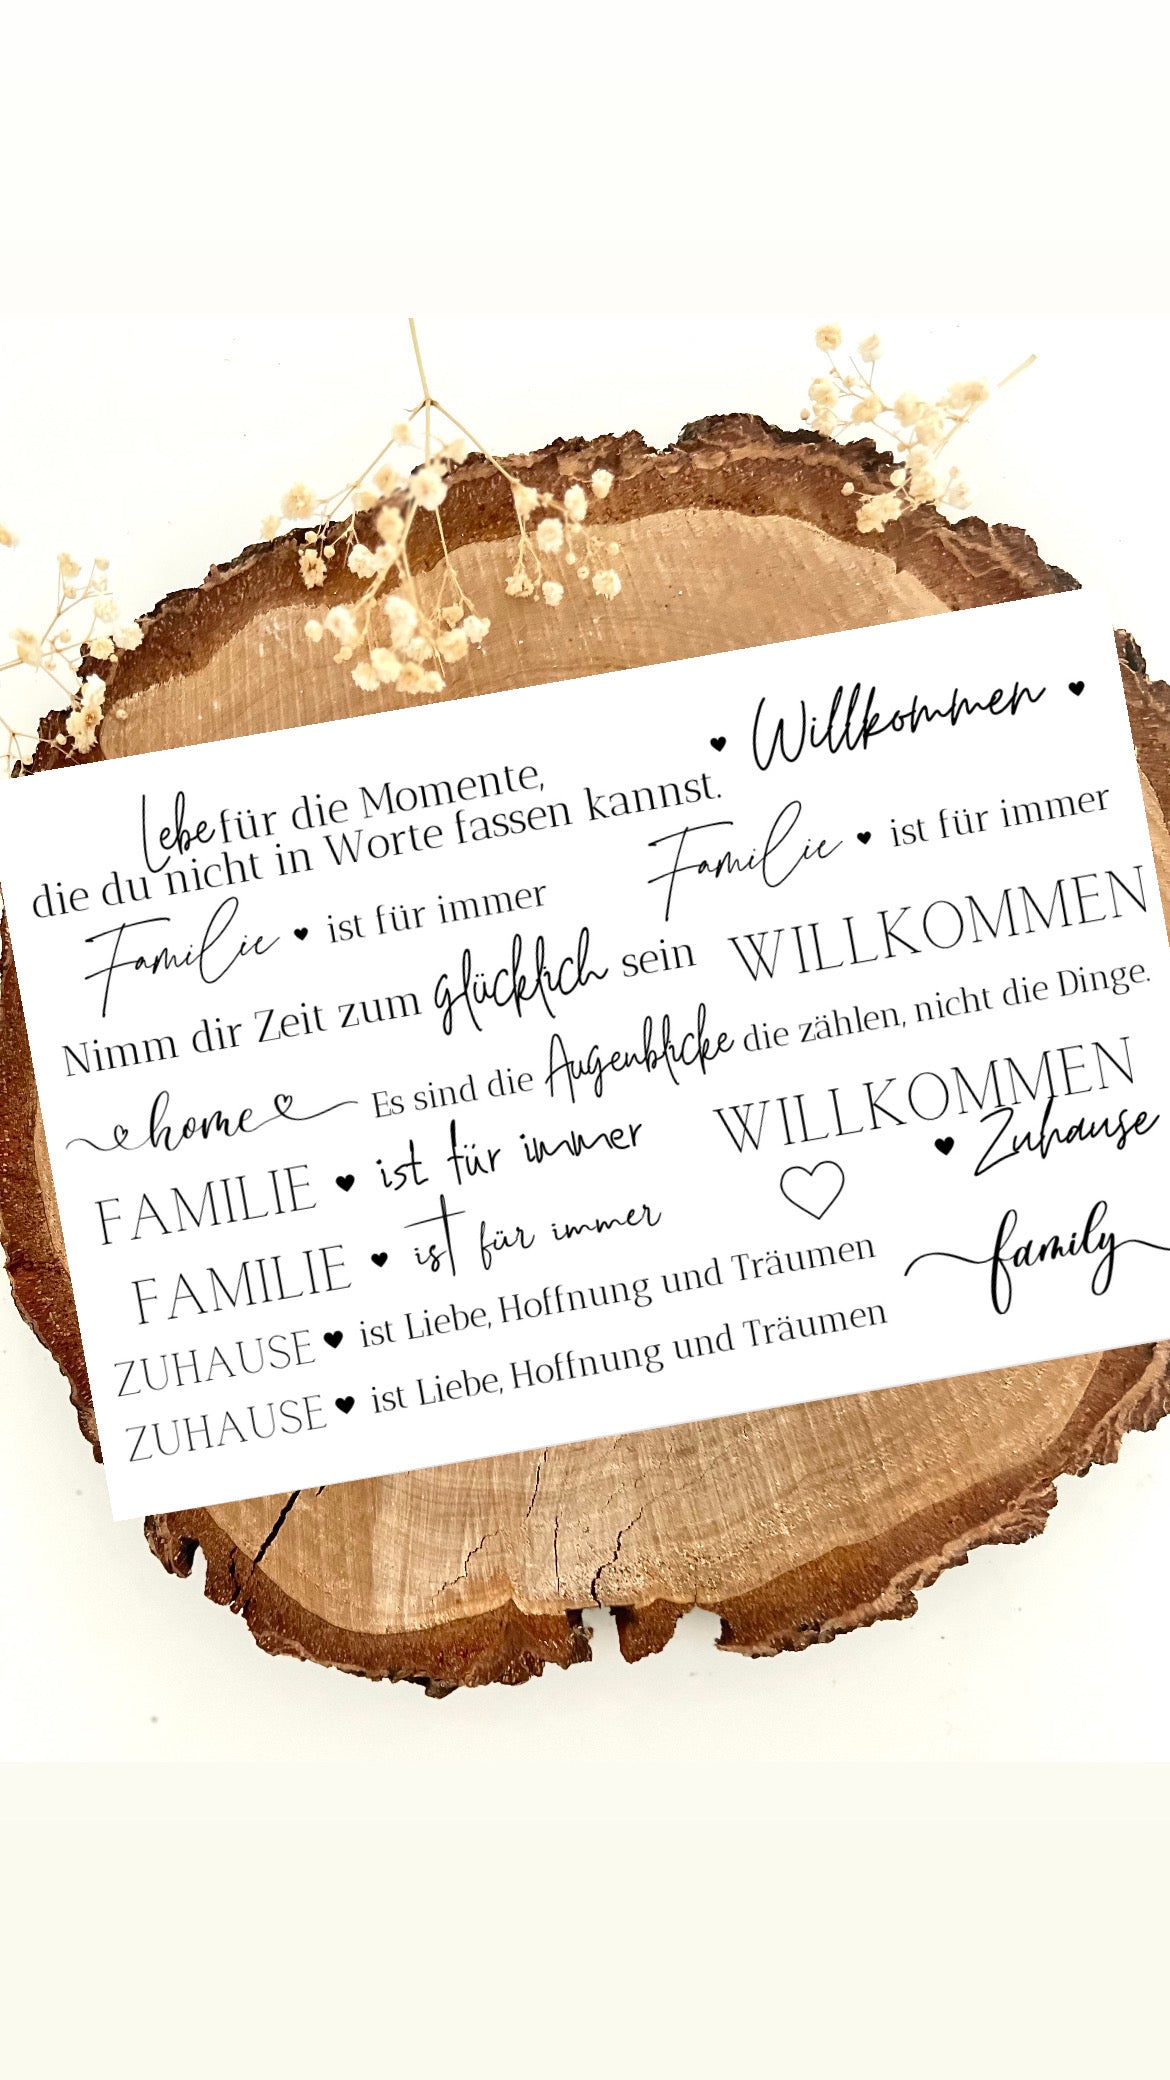 ♥ Willkommen ♥
Lebe für die Momente,
die du nicht in Worte fassen kannst.
Familie ♥ ist für immer
Familie ♥ ist für immer
Nimm dir Zeit zum glücklich sein
WILLKOMMEN
home
Es sind die Augenblicke die zählen, nicht die Dinge.
FAMILIE ♥ ist für immer
WILLKOMMEN
♥ Zuhause
FAMILIE ♥ ist für immer
family
ZUHAUSE ♥ ist Liebe, Hoffnung und Träumen
ZUHAUSE ♥ ist Liebe, Hoffnung und Träumen